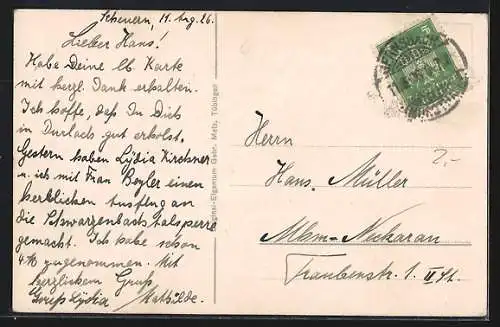 Scheuern, 11. Aug. 26.
Lieber Hans!
Habe Deine lb. Karte
mit herzl. Dank erhalten.
Ich hoffe, daß Du Dich
in Durlach gut erholst.
Gestern haben Lydia Kirchner
u. ich mit Frau Beyler einen
herrlichen Ausflug an
die Schwarzenbachtalsperre
gemacht. Ich habe schon
4 ℔ zugenommen. Mit
herzlichem Gruß
Gruß Lydia Mathilde.
Original-Eigentum Gebr. Metz, Tübingen
Herrn
Hans Müller
Mhm-Neckarau
Traubenstr. 1. II St.
2,-